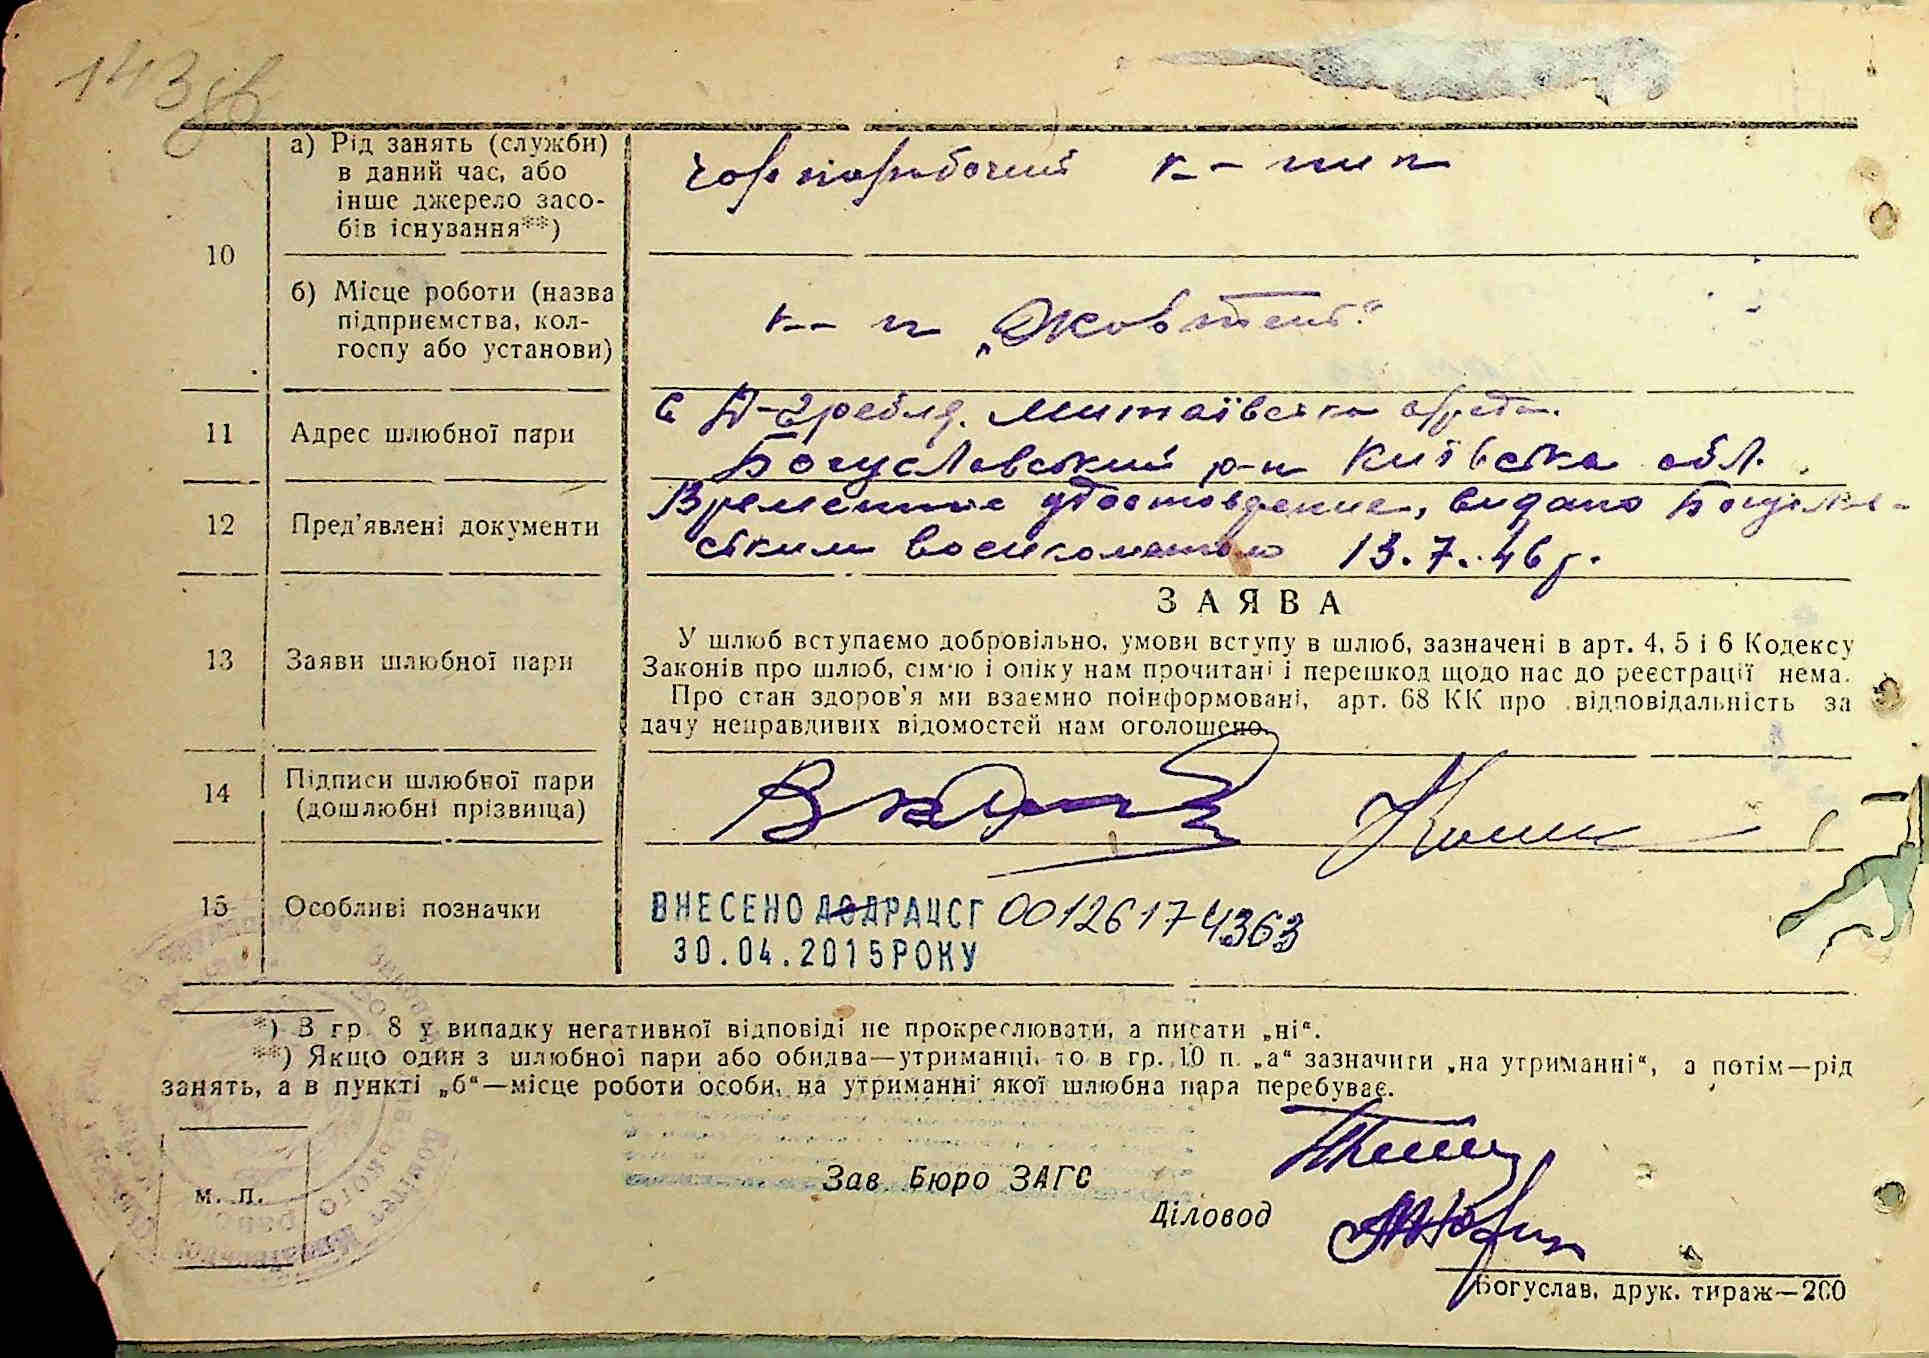 143 зв
а) Рід занять (служби)
в даний час, або
інше джерело засо-
бів існування**)
чорноробочий к-
10
б) Місце роботи (назва
підприємства, кол-
госпу або установи)
к-п „Жовтень“
11
Адрес шлюбної пари
с Д-Гребля.
Богуславський р-н Київська обл.
12
Пред'явлені документи
Временное удостовдение, видано Богуслав-
ським воєнкоматом 13.7.46 р.
13
Заяви шлюбної пари
ЗАЯВА
У шлюб вступаємо добровільно, умови вступу в шлюб, зазначені в арт. 4, 5 і 6 Кодексу
Законів про шлюб, сім'ю і опіку нам прочитані і перешкод щодо нас до реєстрації нема.
Про стан здоров'я ми взаємно поінформовані, арт. 68 КК про відповідальність за
дачу неправдивих відомостей нам оголошено.
14
Підписи шлюбної пари
(дошлюбні прізвища)
15
Особливі позначки
ВНЕСЕНО ДО ДРАЦСГ 00126174363
30.04.2015 РОКУ
*) В гр. 8 у випадку негативної відповіді не прокреслювати, а писати „ні“.
**) Якщо один з шлюбної пари або обидва—утриманці, то в гр. 10 п. „а“ зазначити „на утриманні“, а потім—рід
занять, а в пункті „б“—місце роботи особи, на утриманні якої шлюбна пара перебуває.
Зав. Бюро ЗАГС
м. п.
Діловод
Богуслав, друк. тираж—200